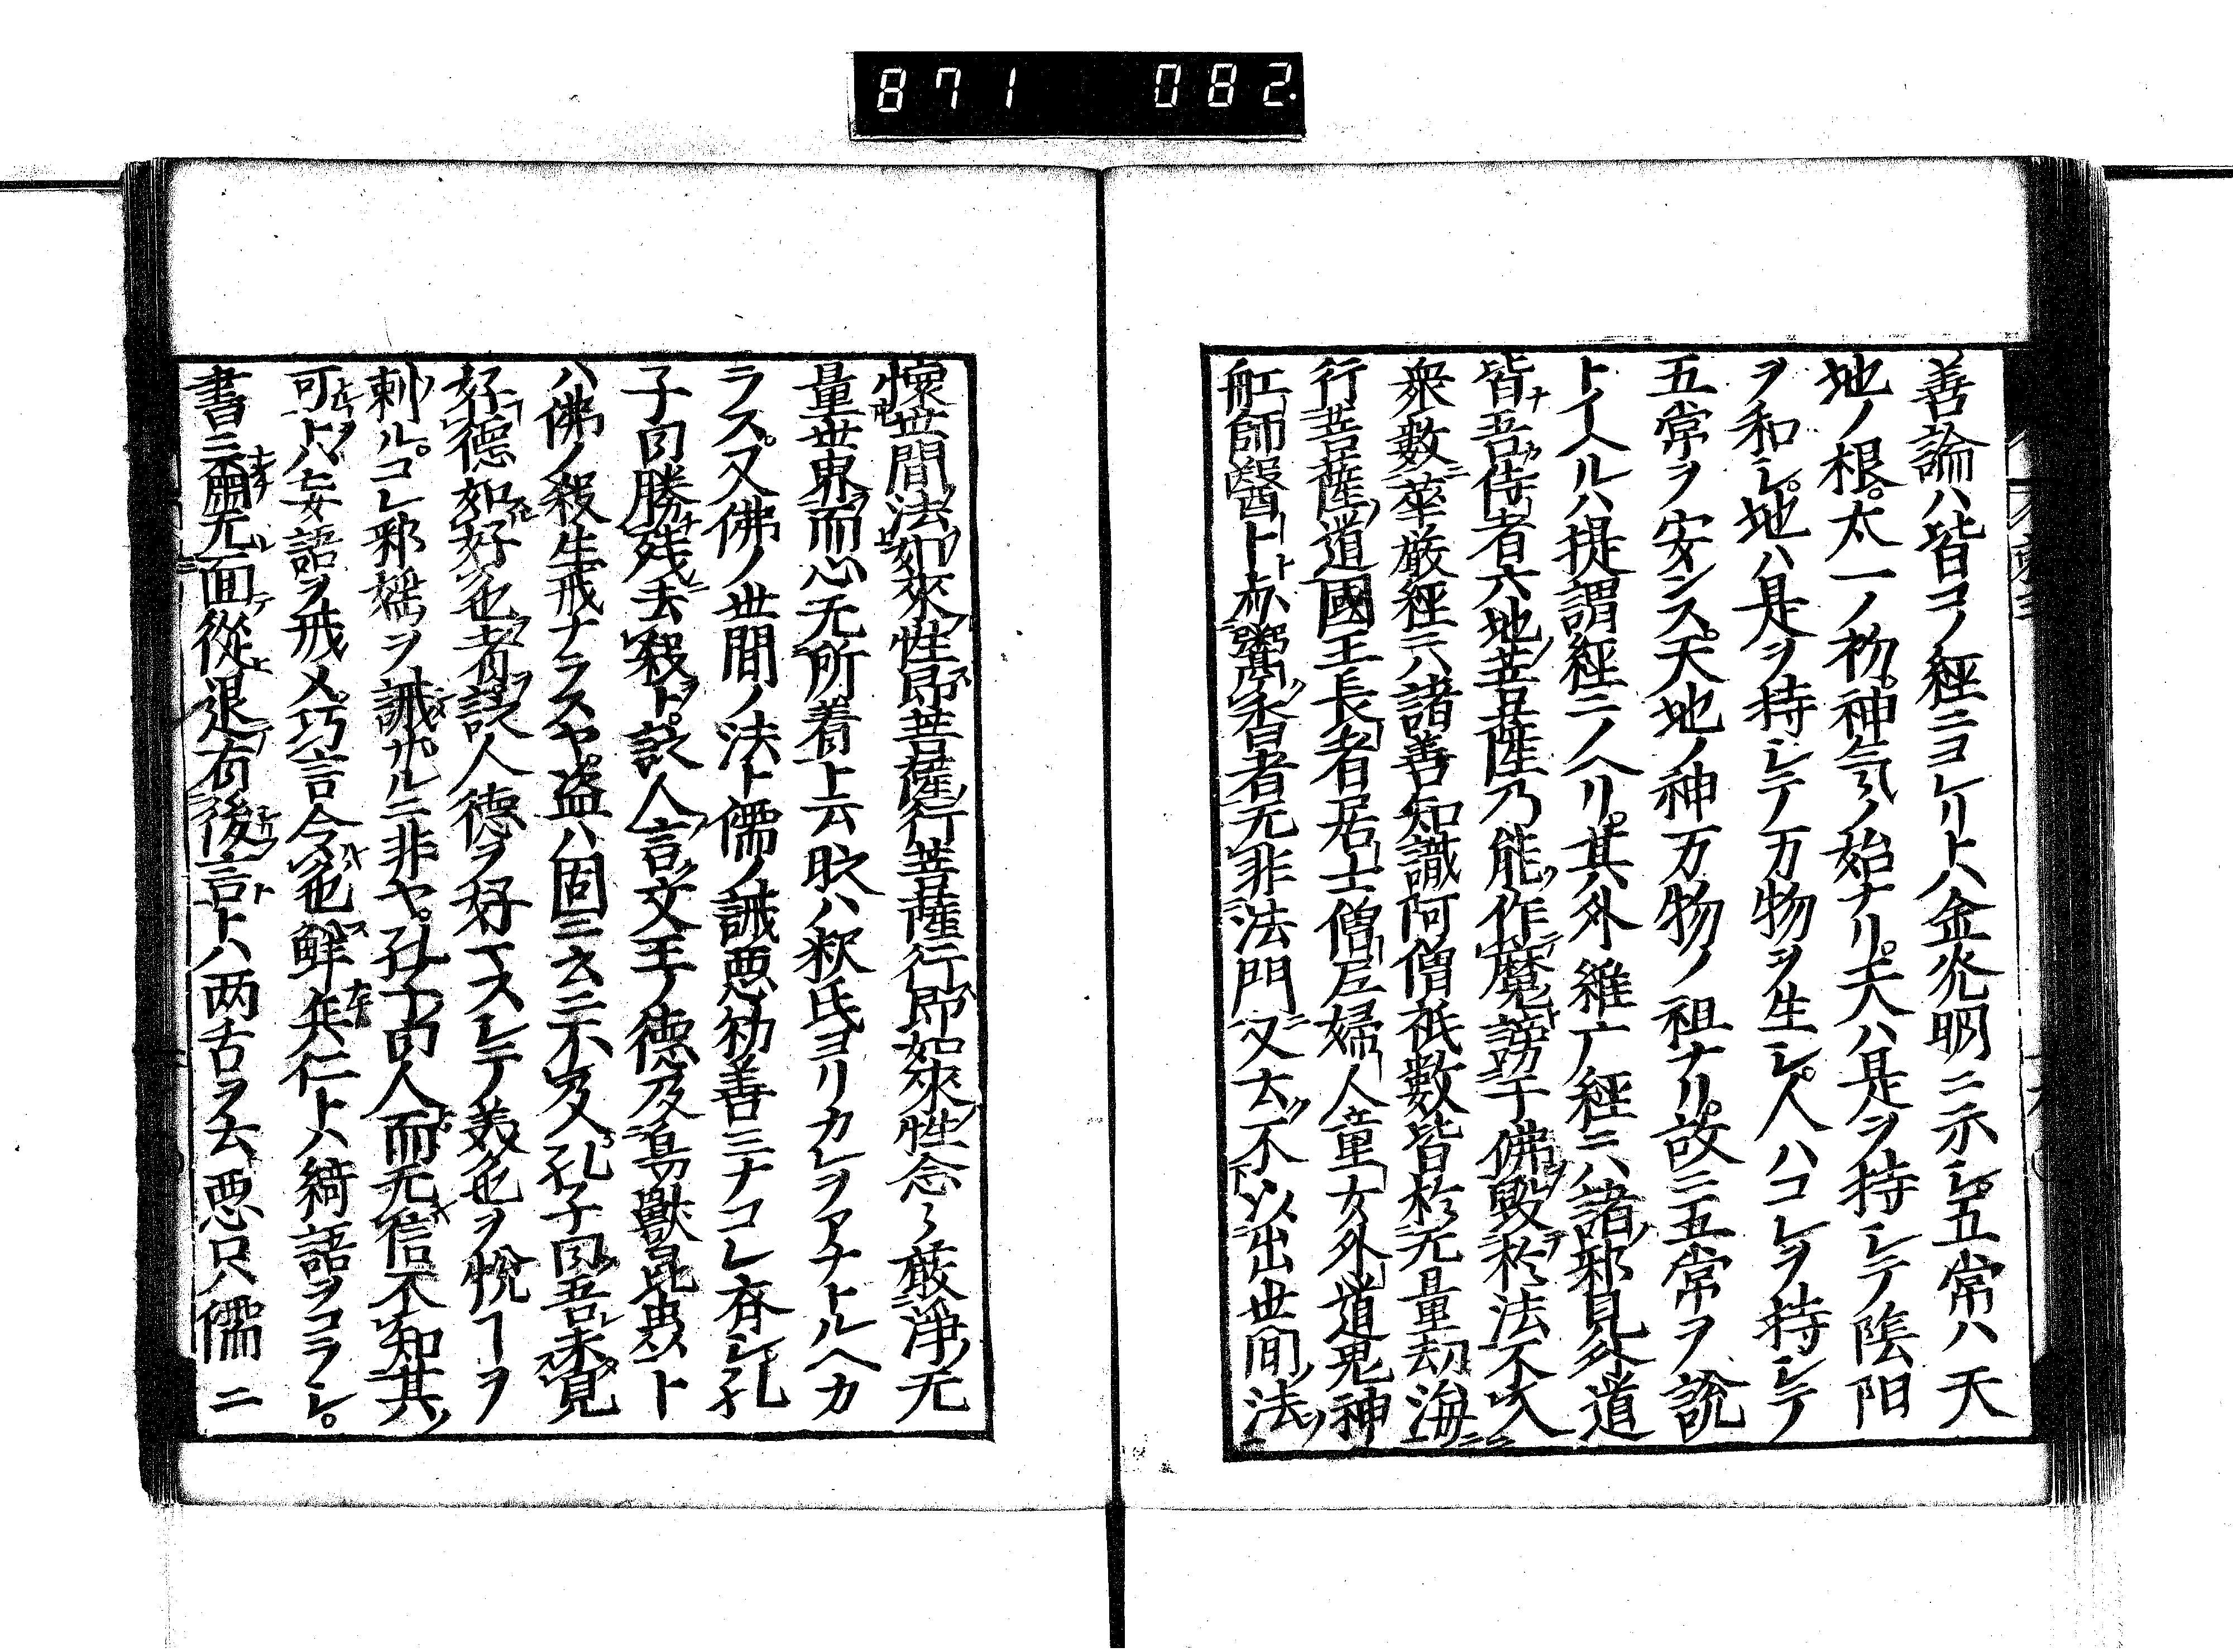 871 082.
善論ハ皆コノ經ニヨレリトハ金光明ニ示シ。五常ハ天
地ノ根。太一ノ初。神気ノ始ナリ。夫ハ是ヲ持シテ陰陽
ヲ和シ。地ハ是ヲ持シテ万物ヲ生シ。人ハコレヲ持シテ
五常ヲ安ンス。天地ノ神万物ノ祖ナリ。故ニ五常ヲ説
トイヘルハ提謂經ニノヘリ。其外維广經ニハ諸邪見外道
皆吾侍者六地菩薩乃能作魔謗于佛毀於法不入
衆數華厳經ニハ諸善知識阿僧祇數皆於无量劫海
行菩薩道國王長者居士僧尼婦人童女外道鬼神
舡師醫卜亦鬻香者无非法門又云不以出世間法
懐世間法如來性即菩薩行菩薩行即如來性念〻嚴淨无
量世界而心无所着ト云ヘハ釈氏ヨリカレヲアナトルヘカ
ラス。又佛ノ世間ノ法ト儒ノ誡悪勧善ミナコレ斉シ孔
子曰勝残去殺ト。說人言文王ノ德及鳥獣昆虫ト
ハ佛ノ殺生戒ナラスヤ。盗ハ固ニ云ニ不及孔子曰吾未見
好德如好色者說人德ヲ好マスシテ美色ヲ悅フヲ
刺ル。コレ邪婬ヲ誡ルニ非ヤ。孔子曰人而无信不知其
可トハ妄語ヲ戒メ。巧言令色鮮矣仁トハ綺語ヲコラシ。
書ニ爾无面從退有後言トハ两舌ヲ云悪只ハ儒ニ